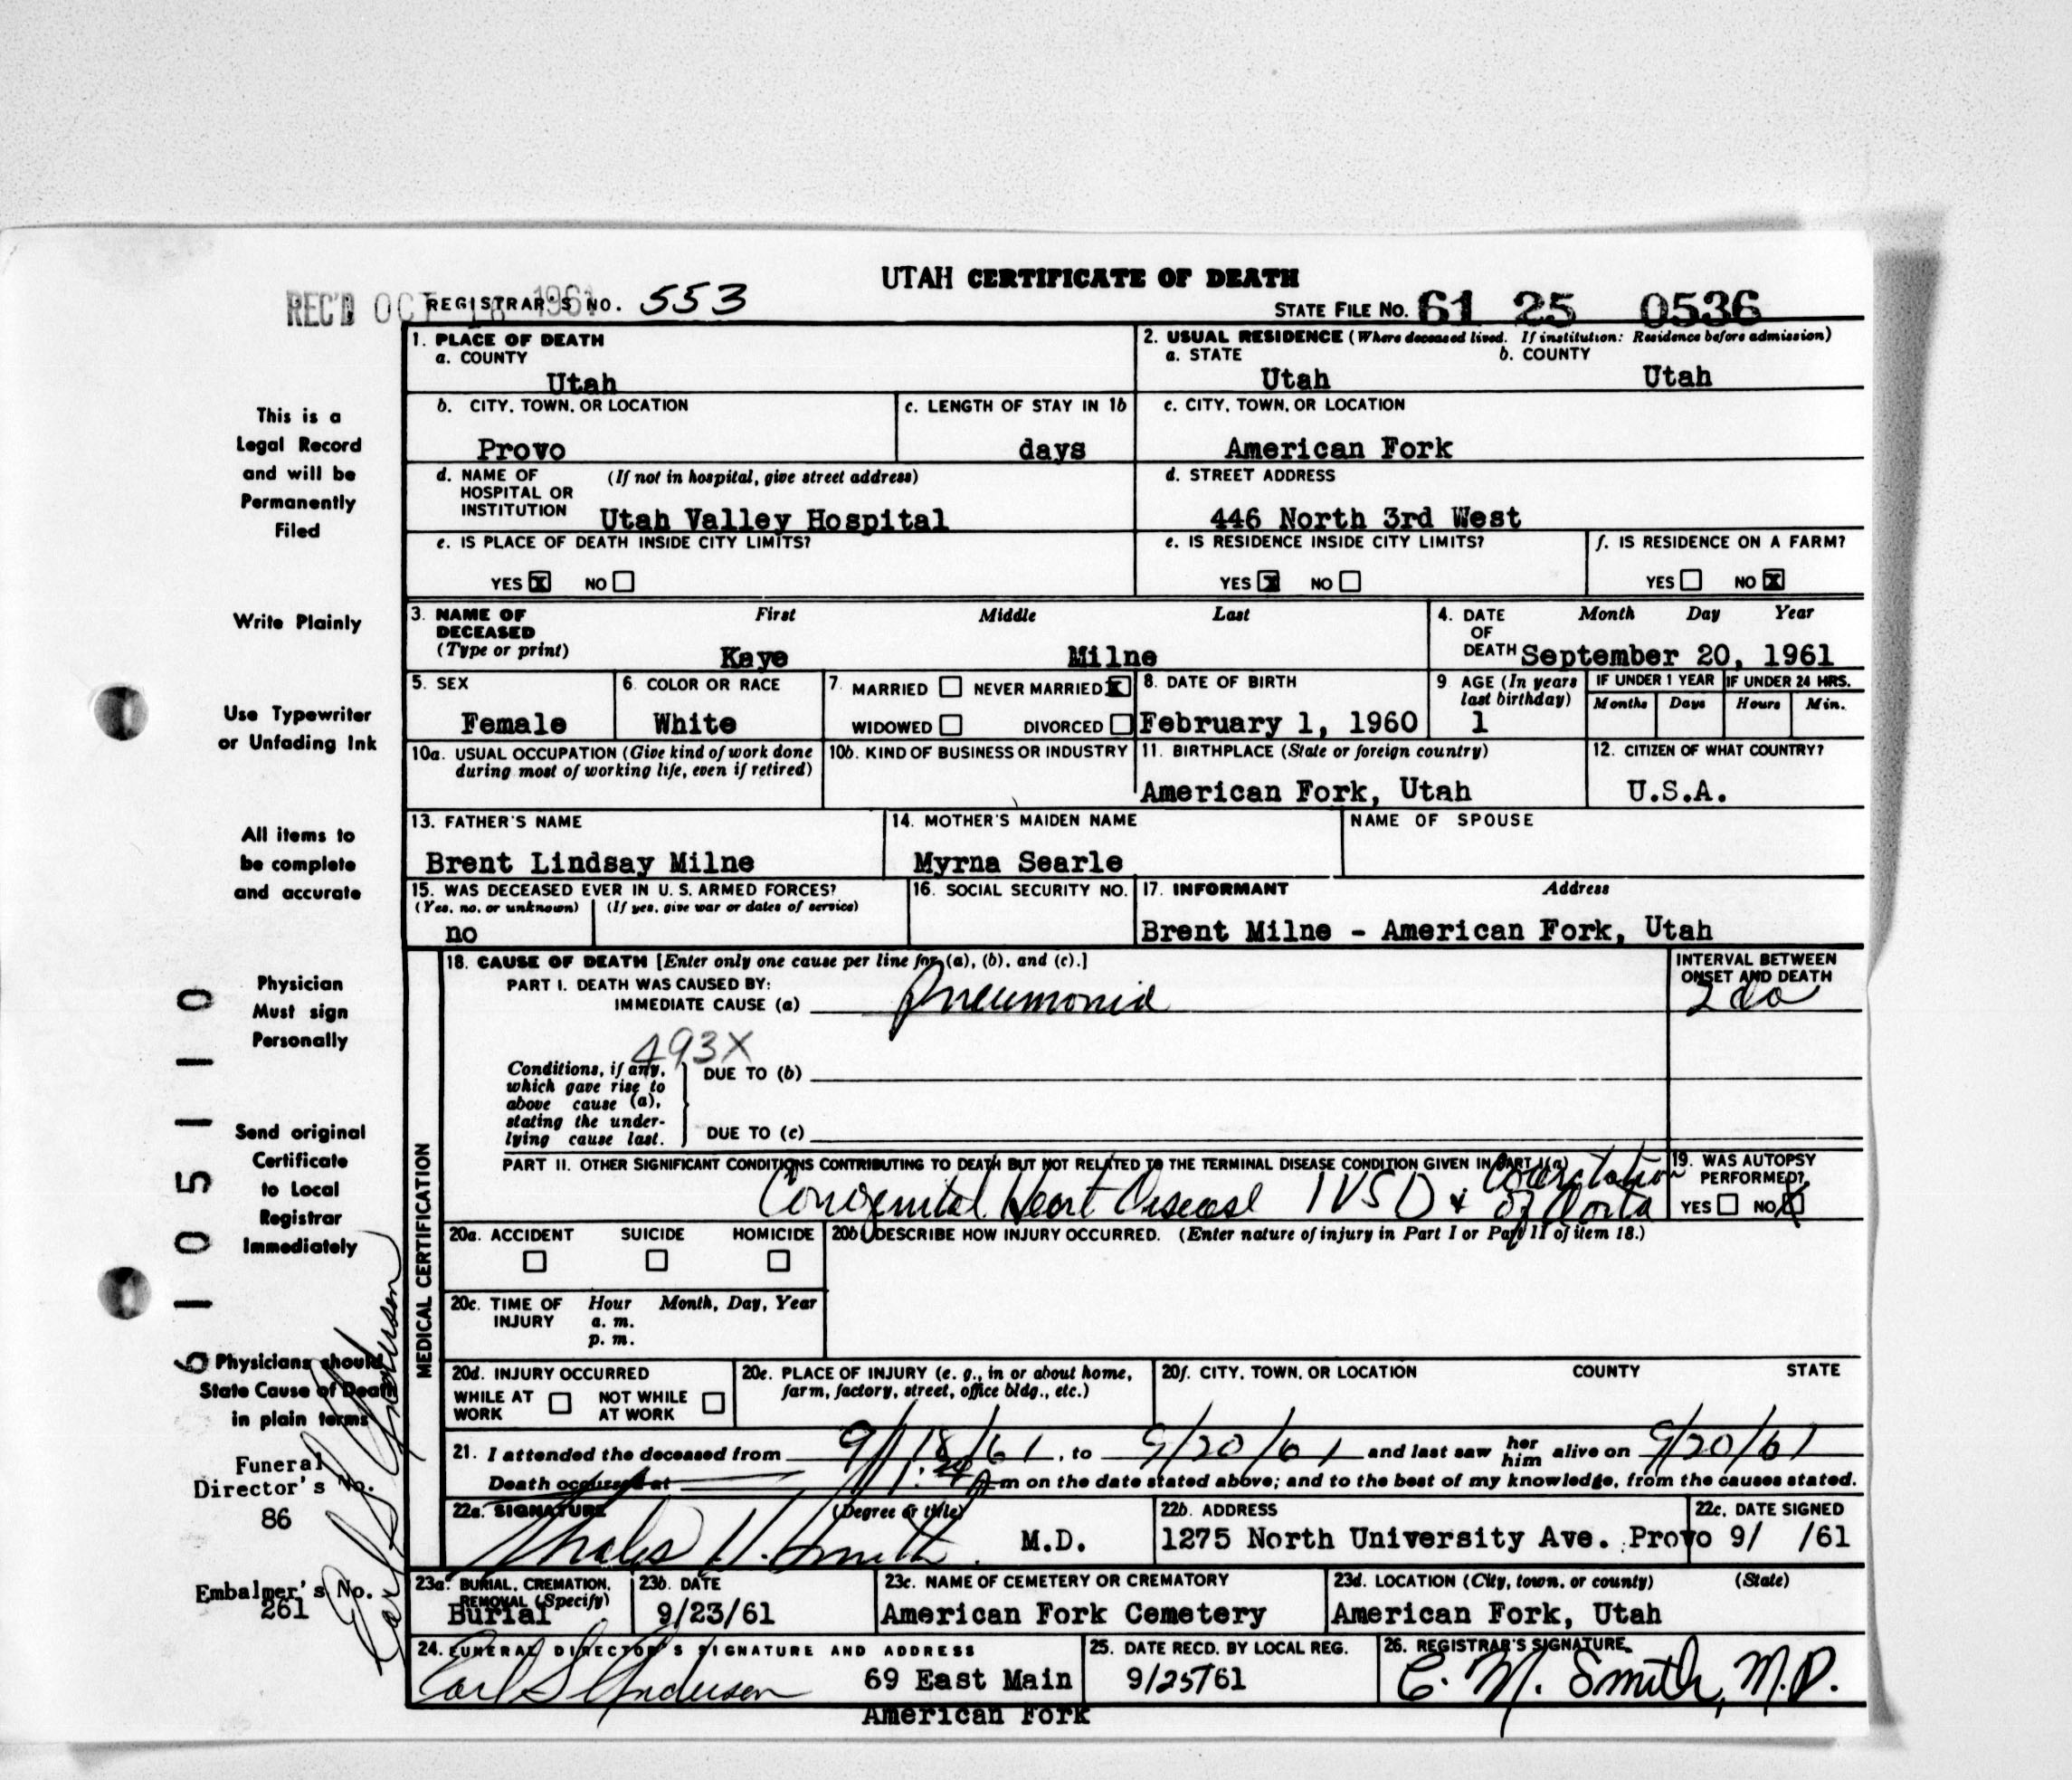 UTAH CERTIFICATE OF DEATH
REC'D OCT 18 1961 REGISTRAR'S NO. 553
STATE FILE NO. 61 25 0536
1. PLACE OF DEATH
a. COUNTY
Utah
2. USUAL RESIDENCE (Where deceased lived. If institution: Residence before admission)
a. STATE b. COUNTY
Utah Utah
b. CITY, TOWN, OR LOCATION
Provo
c. LENGTH OF STAY IN 1b
days
c. CITY, TOWN, OR LOCATION
American Fork
d. NAME OF (If not in hospital, give street address)
HOSPITAL OR
INSTITUTION Utah Valley Hospital
d. STREET ADDRESS
446 North 3rd West
e. IS PLACE OF DEATH INSIDE CITY LIMITS?
YES X NO
e. IS RESIDENCE INSIDE CITY LIMITS?
YES X NO
f. IS RESIDENCE ON A FARM?
YES NO X
3. NAME OF First Middle Last
DECEASED
(Type or print) Kaye Milne
4. DATE Month Day Year
OF
DEATH September 20, 1961
5. SEX
Female
6. COLOR OR RACE
White
7. MARRIED NEVER MARRIED X
WIDOWED DIVORCED
8. DATE OF BIRTH
February 1, 1960
9 AGE (In years
last birthday)
1
IF UNDER 1 YEAR IF UNDER 24 HRS.
Months Days Hours Min.
10a. USUAL OCCUPATION (Give kind of work done
during most of working life, even if retired)
10b. KIND OF BUSINESS OR INDUSTRY
11. BIRTHPLACE (State or foreign country)
American Fork, Utah
12. CITIZEN OF WHAT COUNTRY?
U.S.A.
13. FATHER'S NAME
Brent Lindsay Milne
14. MOTHER'S MAIDEN NAME
Myrna Searle
NAME OF SPOUSE
15. WAS DECEASED EVER IN U. S. ARMED FORCES?
(Yes, no, or unknown) (If yes, give war or dates of service)
no
16. SOCIAL SECURITY NO.
17. INFORMANT Address
Brent Milne - American Fork, Utah
MEDICAL CERTIFICATION
18. CAUSE OF DEATH [Enter only one cause per line for (a), (b), and (c).]
PART I. DEATH WAS CAUSED BY:
IMMEDIATE CAUSE (a) Pneumonia
INTERVAL BETWEEN
ONSET AND DEATH
2 da
493X
Conditions, if any,
which gave rise to
above cause (a),
stating the under-
lying cause last.
DUE TO (b)
DUE TO (c)
PART II. OTHER SIGNIFICANT CONDITIONS CONTRIBUTING TO DEATH BUT NOT RELATED TO THE TERMINAL DISEASE CONDITION GIVEN IN PART I(a)
Congenital Heart Disease IVSD & Coarctation of Aorta
19. WAS AUTOPSY
PERFORMED?
YES NO X
20a. ACCIDENT SUICIDE HOMICIDE
20b. DESCRIBE HOW INJURY OCCURRED. (Enter nature of injury in Part I or Part II of item 18.)
20c. TIME OF Hour Month, Day, Year
INJURY a. m.
p. m.
20d. INJURY OCCURRED
WHILE AT NOT WHILE
WORK AT WORK
20e. PLACE OF INJURY (e. g., in or about home,
farm, factory, street, office bldg., etc.)
20f. CITY, TOWN, OR LOCATION COUNTY STATE
21. I attended the deceased from 9/18/61, to 9/20/61 and last saw her him alive on 9/20/61
Death occurred at m on the date stated above; and to the best of my knowledge, from the causes stated.
22a. SIGNATURE (Degree or title)
Smith M.D.
22b. ADDRESS
1275 North University Ave. Provo
22c. DATE SIGNED
9/ /61
23a. BURIAL, CREMATION,
REMOVAL (Specify)
Burial
23b. DATE
9/23/61
23c. NAME OF CEMETERY OR CREMATORY
American Fork Cemetery
23d. LOCATION (City, town, or county) (State)
American Fork, Utah
24. FUNERAL DIRECTOR'S SIGNATURE AND ADDRESS
Earl S Anderson 69 East Main
American Fork
25. DATE RECD. BY LOCAL REG.
9/25/61
26. REGISTRAR'S SIGNATURE
C. M. Smith, M.D.
This is a
Legal Record
and will be
Permanently
Filed
Write Plainly
Use Typewriter
or Unfading Ink
All items to
be complete
and accurate
Physician
Must sign
Personally
Send original
Certificate
to Local
Registrar
Immediately
Physicians should
State Cause of Death
in plain terms
Funeral
Director's No.
86
Embalmer's No.
261
Earl S Anderson
6105110